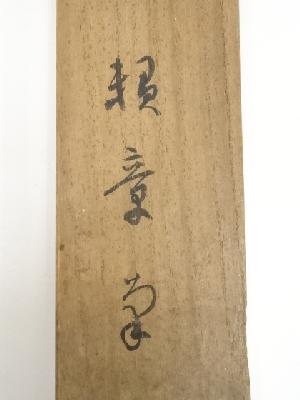 頼章筆